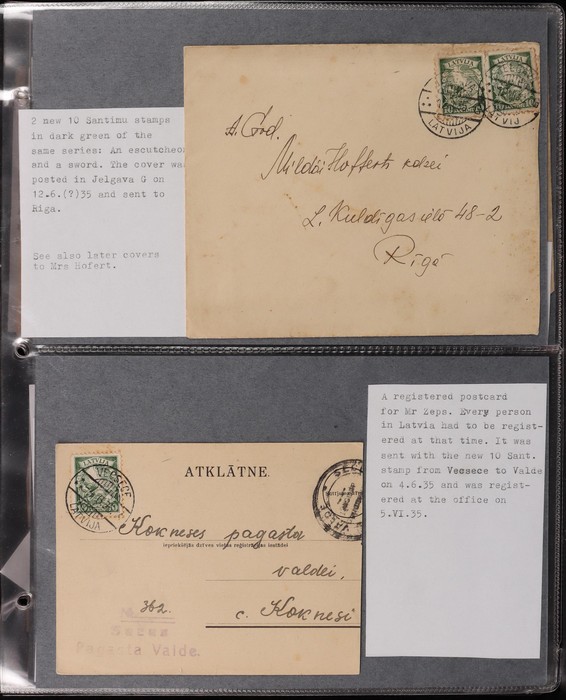 2 new 10 Santimu stamps
in dark green of the
same series: An escutcheo
and a sword. The cover wa
posted in Jelgava G on
12.6.(?)35 and sent to
Riga.
See also later covers
to Mrs Hofert.
LATVIJA
LATVIJA
LATVIJA
LATVIJ
A. God.
Mildai Hofferts kdzei
L. Kuldīgas ielā 48-2
Rīgā
A registered postcard
for Mr Zeps. Every person
in Latvia had to be regist-
ered at that time. It was
sent with the new 10 Sant.
stamp from Vecsece to Valde
on 4.6.35 and was regist-
ered at the office on
5.VI.35.
LATVIJA
VECSECE
LATVIJA
ATKLĀTNE.
Kokneses pagasta
iepriekšējās dzīves vietas reģistrācijas iestādei
valdei,
362.
c. Koknesi
Pagasta Valde.